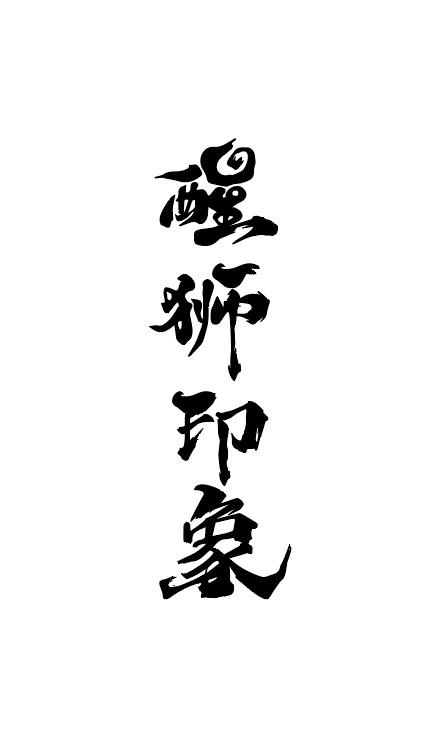 醒狮印象